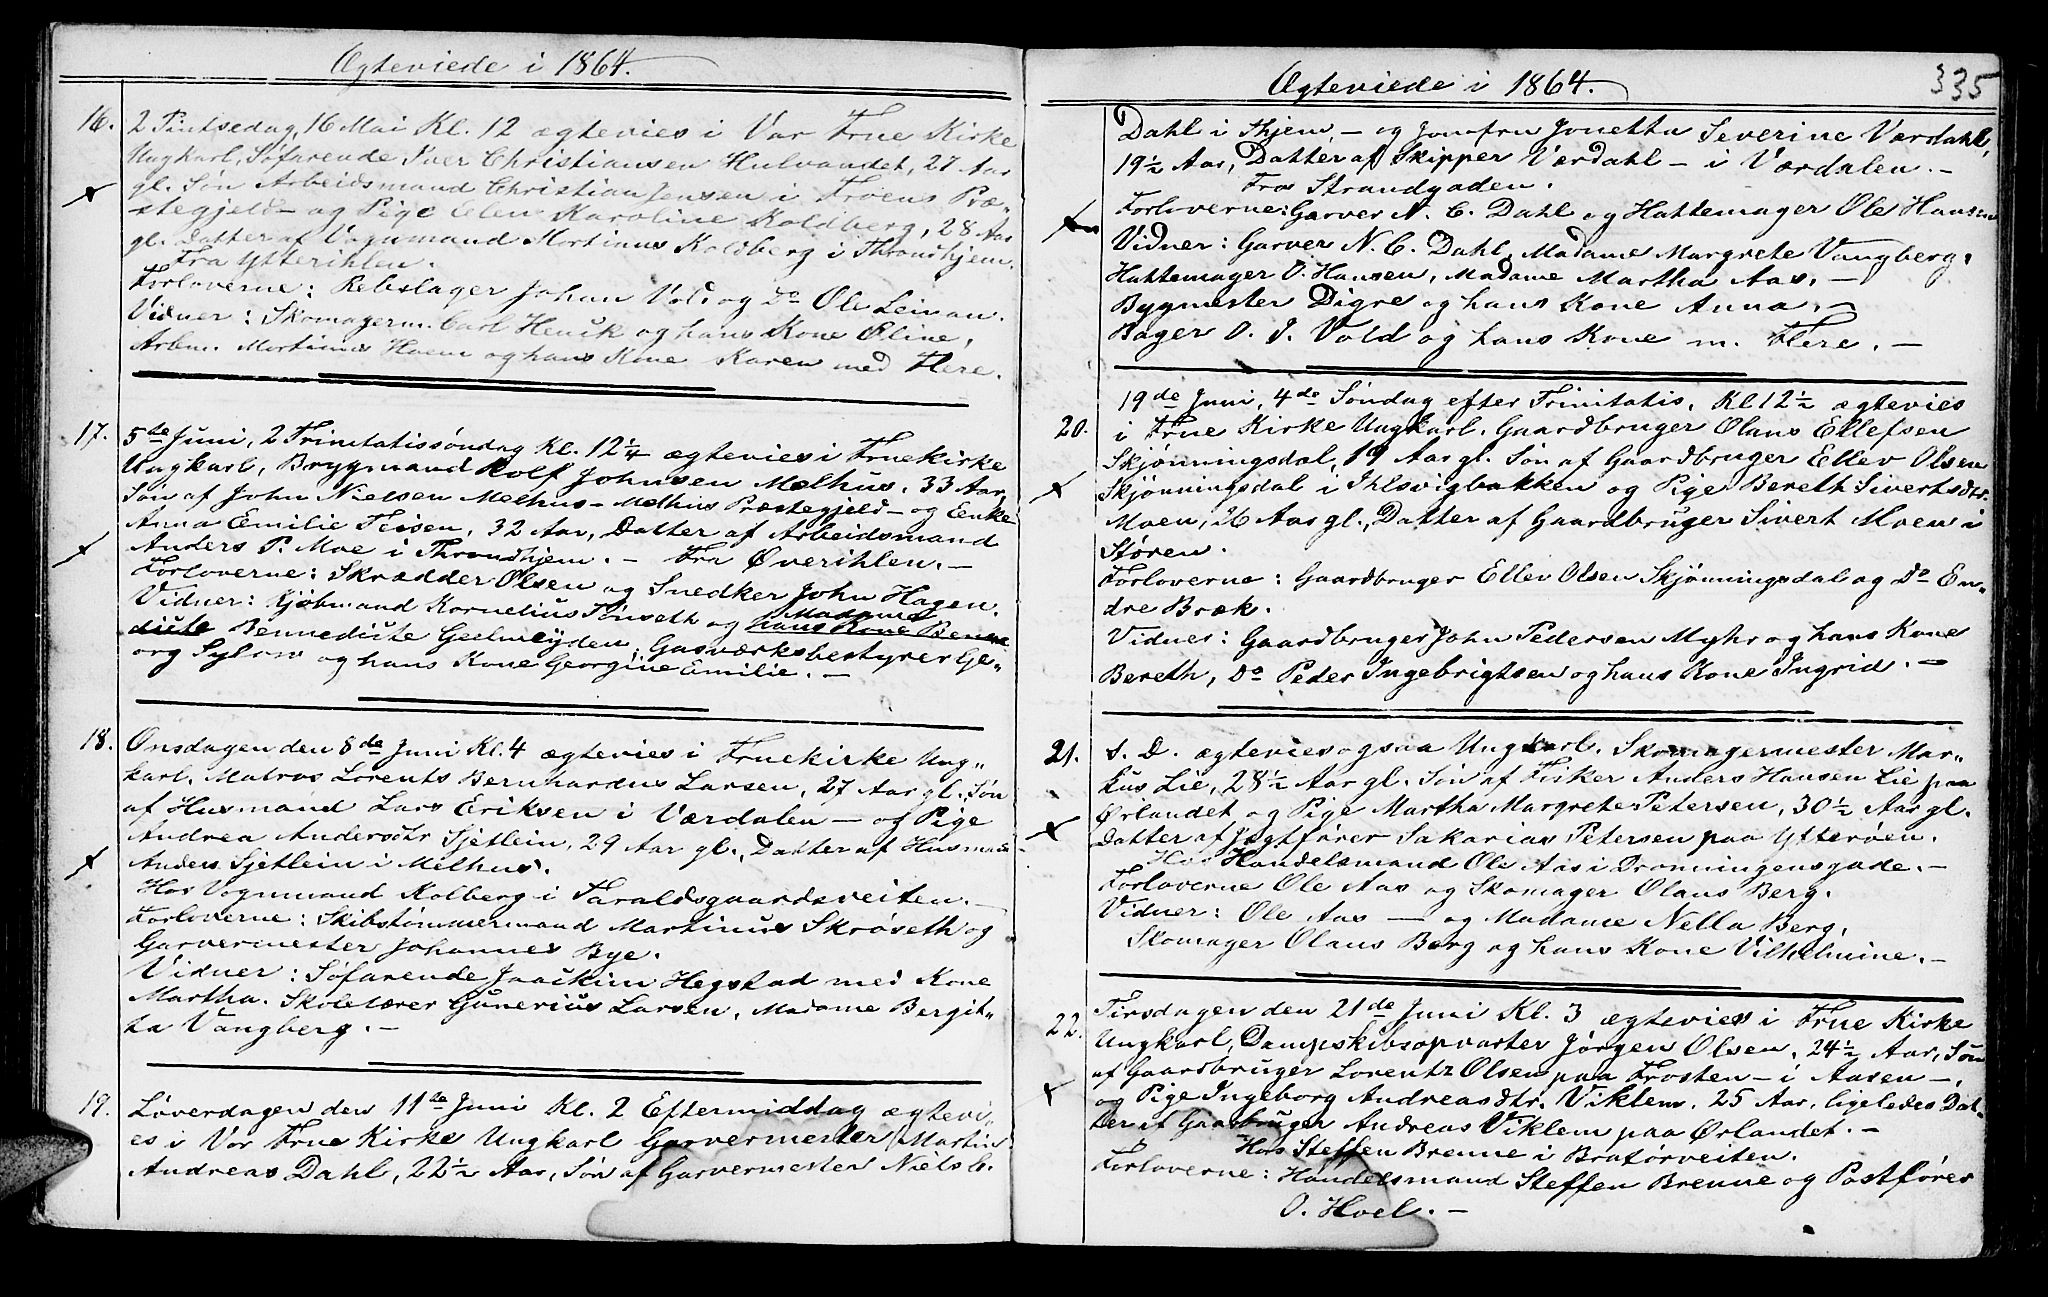 Ægteviede i 1864.
16. 2 Pintsedag, 16 Mai Kl. 12 ægtevies i Vor Frue Kirke
Ungkarl, Søfarende Iver Christiansen Hulvandet, 27 Aar
gl. Søn Arbeidsmand Christian Jensen i Froens Præ-
stegjeld - og Pige Elen Karoline Koldberg, 28 Aar
gl. Datter af Vognmand Martinus Koldberg i Throndhjem.
Fra Ytterihlen.
Forloverne: Rebslager Johan Vold og Do Ole Leinan.
Vidner: Skomagerm. Carl Henrik og hans Kone Oline,
Arbm. Martinus Hoem og hans Kone Karen med Flere.
17. 5te Juni, 2 Trinitatissøndag Kl. 12 1/4 ægtevies i Fruekirke
Ungkarl, Brygmand Rolf Johnsen Melhus, 33 Aar,
Søn af John Nielsen Melhus - Melhus Præstegjeld - og Enke
Anna Emilie Teisen, 32 Aar, Datter af Arbeidsmand
Anders P. Moe i Throndhjem. - Fra Øverihlen. -
Forloverne: Skrædder Olsen og Snedker John Hagen.
Vidner: Kjøbmand Kornelius Tønseth og hans Kone Madame
Bennedicte Geelmeyden, Gasværksbestyrer Ge-
org Sylow og hans Kone Georgine Emilie. -
18. Onsdagen den 8de Juni Kl. 4 ægtevies i Fruekirke Ung-
karl, Matros Lorents Bernhardus Larsen, 27 Aar gl. Søn
af Husmand Lars Eriksen i Værdalen - og Pige
Andrea Andersdtr Sjetlein, 29 Aar gl., Datter af Husmand
Anders Sjetlein i Melhus.
Hos Vognmand Kolberg i Taraldsgaardsveiten. -
Forloverne: Skibstømmermand Martinus Skrøseth og
Garvermester Johannes Bye.
Vidner: Søfarende Joackim Hegstad med Kone
Martha. Skolelærer Gunerius Larsen, Madame Bergit-
ta Vangberg. -
19. Løverdagen den 11te Juni Kl. 2 Eftermiddag ægtevi-
es i Vor Frue Kirke Ungkarl Garvermester Martin
Andreas Dahl, 22 1/2 Aar, Søn af Garvermester Niels C.
Ægteviede i 1864.
335
Dahl i Thjem, - og Jomfru Jonetta Severine Værdahl,
19 1/2 Aar, Datter af Skipper Værdahl - i Værdalen. -
Fra Strandgaden.
Forloverne: Garver N. C. Dahl og Hattemager Ole Hansen
Vidner: Garver N. C. Dahl, Madame Margrete Vangberg,
Hattemager O. Hansen, Madame Martha Aas, -
Bygmester Digre og hans Kone Anna, -
Bager O. J. Vold og hans Kone m. Flere. -
20. 19de Juni, 4de Søndag efter Trinitatis, Kl 12 1/2 ægtevies
i Frue Kirke Ungkarl, Gaardbruger Olaus Ellefsen
Skjønningsdal, 19 Aar gl. Søn af Gaardbruger Ellev Olsen
Skjønningsdal i Ihlsvigbakken og Pige Bereth Sivertsdtr.
Moen, 26 Aar gl., Datter af Gaardbruger Sivert Moen i
Støren.
Forloverne: Gaardbruger Ellev Olsen Skjønningsdal og Do En-
dre Bræk.
Vidner: Gaardbruger John Pedersen Myhr og hans Kone
Bereth, Do Peder Ingebrigtsen og hans Kone Ingrid. -
21. S. D. ægtevies ogsaa Ungkarl, Skomagermester Mar-
kus Lie, 28 1/2 Aar gl. Søn af Fisker Anders Hansen Lie paa
Ørlandet og Pige Martha Margrete Petersen, 30 1/2 Aar gl.
Datter af Jægtfører Sakarias Petersen paa Ytterøen.
Hos Handelsmand Ole Aas i Dronningensgade. -
Forloverne Ole Aas og Skomager Olaus Berg.
Vidner: Ole Aas - og Madame Nella Berg,
Skomager Olaus Berg og hans Kone Vilhelmine. -
22. Tirsdagen den 21de Juni Kl. 3 ægtevies i Frue Kirke
Ungkarl, Dampskibsopvarter Jørgen Olsen, 24 1/2 Aar, Søn
af Gaardbruger Lorentz Olsen paa Frosten - i Aasen -,
og Pige Ingeborg Andreasdtr. Viklem, 25 Aar, ligeledes Dat-
ter af Gaarbruger Andreas Viklem paa Ørlandet. -
Hos Steffen Brenne i Bratørveiten.
Forloverne: Handelsmand Steffen Brenne og Postfører
O. Hoel. -